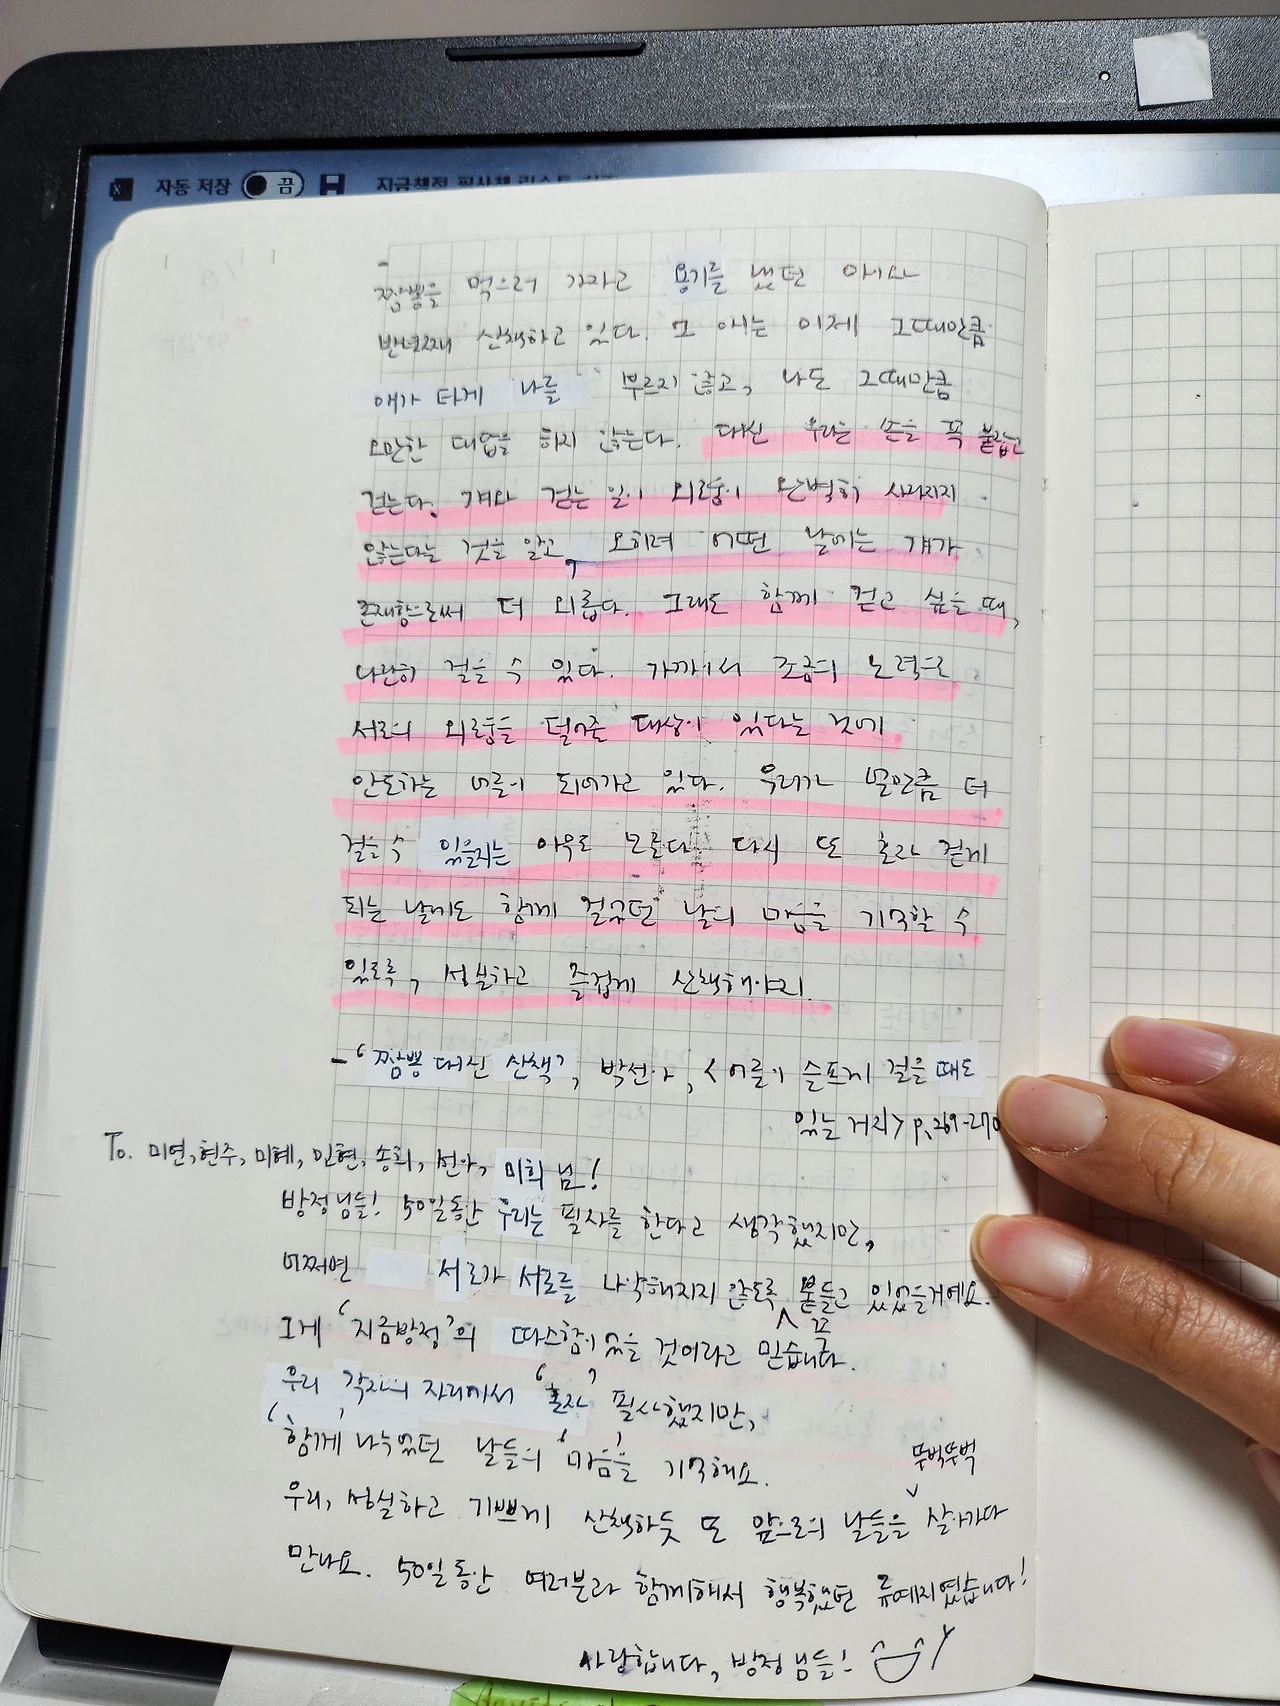 자동 저장 끔
짬뽕을 먹으러 가자고 용기를 냈던 애와
반년째 산책하고 있다. 그 애는 이제 그때만큼
애가 타게 나를 부르지 않고, 나도 그때만큼
오만한 대답을 하지 않는다. 대신 우리는 손을 꼭 붙잡고
걷는다. 걔와 걷는 일이 외로움이 완벽히 사라지지
않는다는 것을 알고, 오히려 어떤 날에는 걔가
존재함으로써 더 외롭다. 그래도 함께 걷고 싶을 때,
나란히 걸을 수 있다. 가까이서 조금의 노력으로
서로의 외로움을 덜어줄 대상이 있다는 것에
안도하는 어른이 되어가고 있다. 우리가 얼만큼 더
걸을 수 있을지는 아무도 모른다. 다시 또 혼자 걷게
되는 날에도 함께 걸었던 날의 마음을 기억할 수
있도록, 성실하고 즐겁게 산책해야지.
- '짬뽕 대신 산책', 박선아, <어른이 슬프게 걸을 때도
있는 거지> p.269-270
To. 미연, 현주, 미혜, 민현, 송희, 선아, 미희 님!
방정님들! 50일동안 우리는 필사를 한다고 생각했지만,
어쩌면 서로가 서로를 나약해지지 않도록 꼭 붙들고 있었을거예요.
그게 '지금방정'의 따스함이었을 것이라고 믿습니다.
우리 각자의 자리에서 '혼자' 필사했지만,
'함께' 나누었던 날들의 '마음'을 기억해요.
우리, 성실하고 기쁘게 산책하듯 또 앞으로의 날들을 뚜벅뚜벅 살아가다
만나요. 50일동안 여러분과 함께해서 행복했던 류예지였습니다!
사랑합니다, 방정님들!